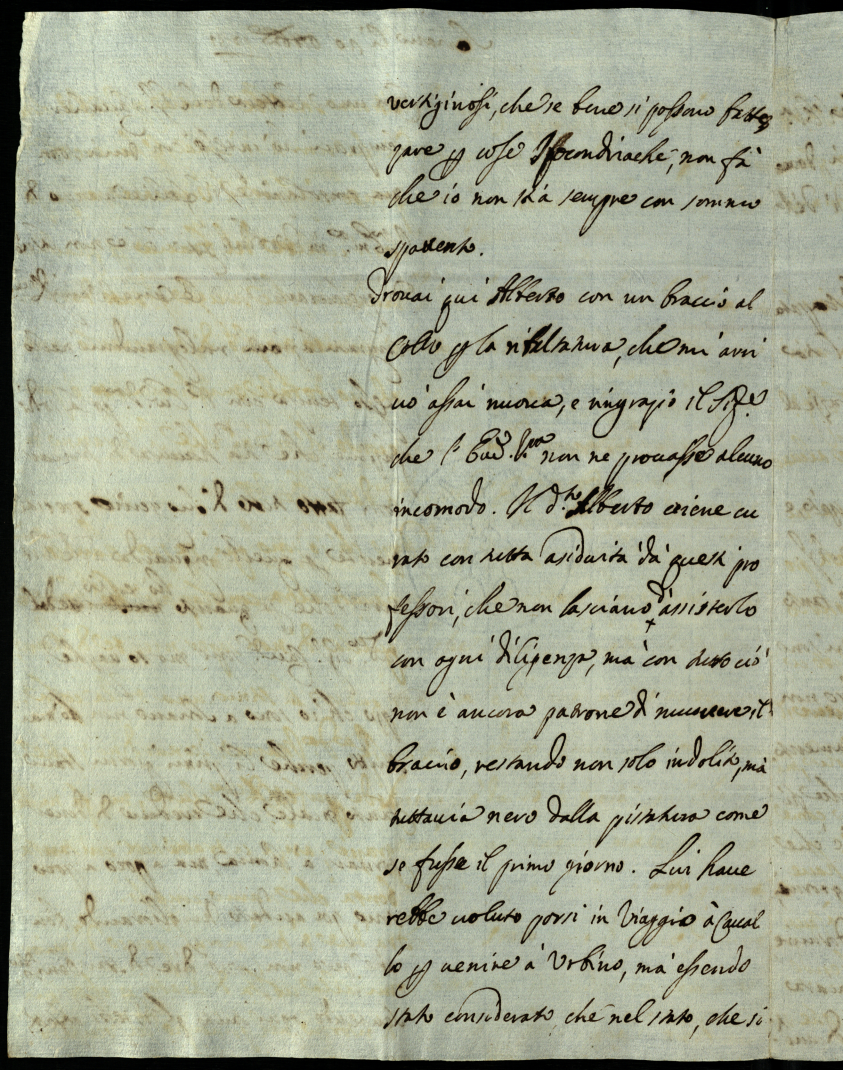 vertiginosi, che se bene si possono batte
zare p cose Ippocondriache, non fà
che io non stia sempre con sommo
spavento.
Trovai qui Alberto con un braccio al
collo p la ribaltatura, che mi arri
vò assai nuova, e ringrazio il Sig.re
che l' Em.a V.ra non ne provasse alcuno
incomodo. Il d.to Alberto viene cu
rato con tutta asiduità dà questi pro
fessori, che non lasciano d'assisterlo
con ogni diligenza, mà con tutto ciò
non è ancora patrone di muovere il
braccio, restando non solo indolito, mà
tuttavia nero dalla pistatura come
se fusse il primo giorno. Lui have
rebbe voluto porsi in Viaggio à Caval
lo p venire à Urbino, mà essendo
stato considerato che nel stato, che si